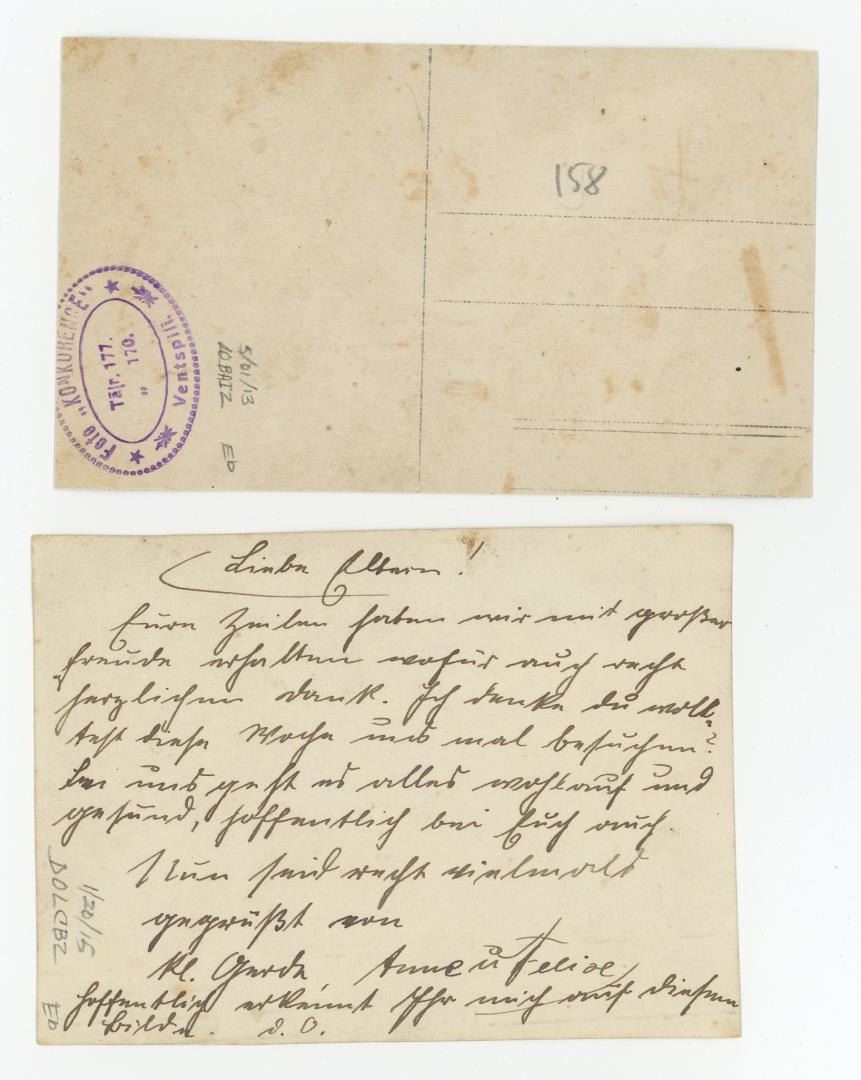 158
Foto „KONKURENCE"
Tālr. 177.
„ 170.
Ventspilī.
5/01/13
Eb
Liebe Eltern!
Eure Zeilen haben wir mit großer
Freude erhalten wofür auch recht
herzlichen Dank. Ich denke du woll-
test diese Woche uns mal besuchen?
Bei uns geht es alles wohlauf und
gesund, hoffentlich bei Euch auch.
Nun seid recht vielmals
gegrüßt von
kl. Gerda, Anne u Felise
Hoffentlich erkennt Ihr mich auf diesem
Bilde. d. O.
1/20/15
Eb